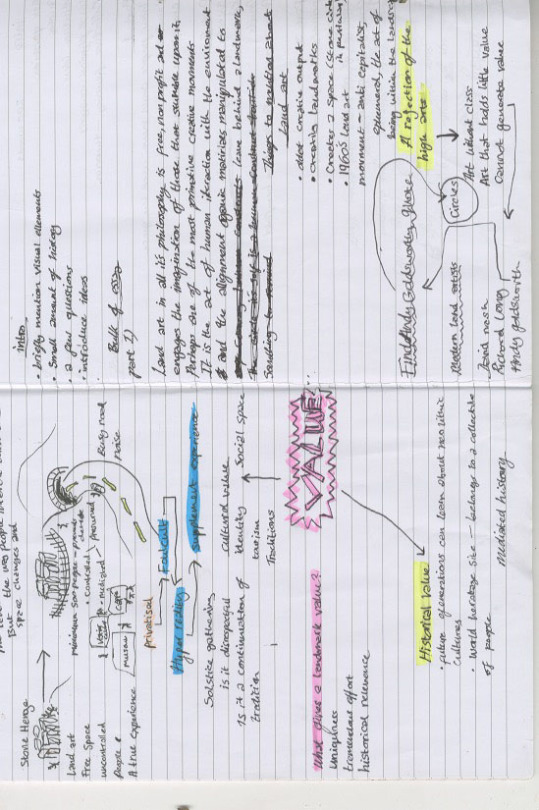 intro
• briefly mention visual elements
• small amount of history
• a few questions
• introduce ideas
Bulk of essay
part 1)
Land art in all it's philosophy is free, non profit and
engages the imagination of those that stumble upon it,
Perhaps one of the most primative creative movments
It is the art of human interaction with the enviroment
and the alignment organic materials manipulated to
leave behind a landmark,
Things to mention about
Land art
• silent creative output
• Creative landmarks
• Creates a space (Stone circles
• 1960s land art
movement - anti capitalist
ephemeral, the act of
being within the landscape
A rejection of the
high arts
Find Andy Goldsworthy quote
Circles
Art without class
Art that holds little value
Cannot generate value
Modern land artists
David nash
Richard Long
Andy goldsworth
the way people
But
space changes and
Stone Henge
Land art
Free Space
uncontrolled
people &
A true experience
• Controled
• mediated
Busy road
noise
cafe
museum
privatised
Foucault
Hyper reality
supplement experience
Solstice gathering
is it disrespectful
Is it a continuation of
tradition
cultural value
Identity
tourism
Traditions
Social space
VALUE
What gives a landmark value?
Uniqueness
tremendous effort
historical relevance
Historical value
• future generations can learn about neolithic
cultures
• World heratage site - belongs to a collective
of people
Mediated history